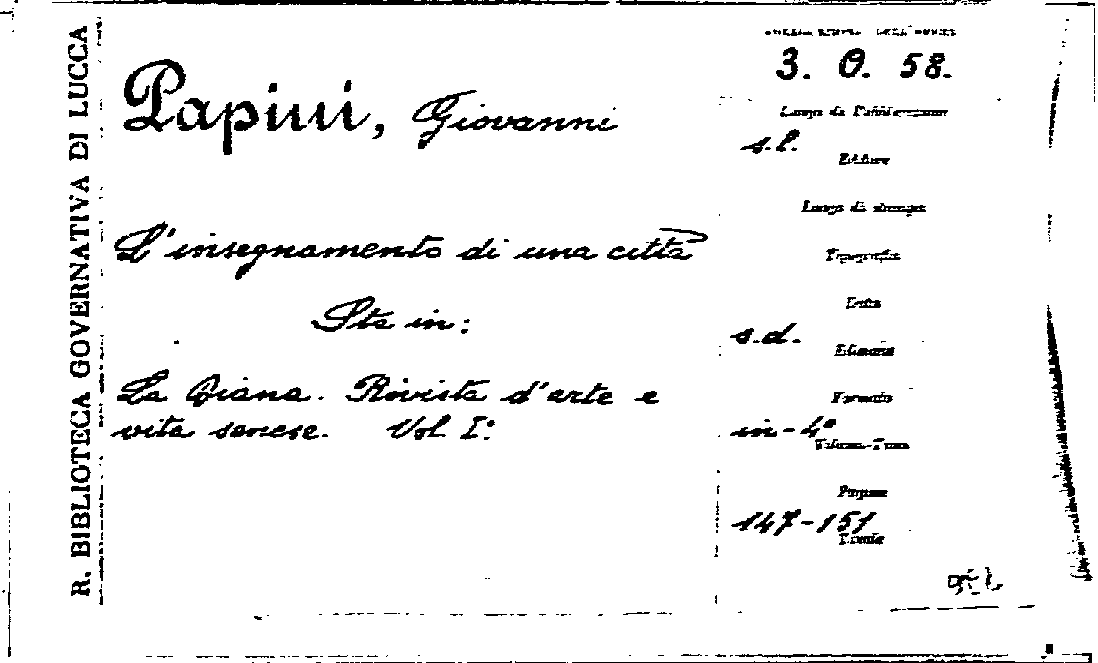 R. BIBLIOTECA GOVERNATIVA DI LUCCA
Papini, Giovanni
L'insegnamento di una città
Sta in:
La Diana. Rivista d'arte e
vita senese. Vol. I°
3. O. 58.
Luogo di Pubblicazione
s.l.
Editore
Luogo di stampa
Tipografia
Data
s.d.
Edizione
Formato
in-4°
Volume-Tomo
Pagine
147-151